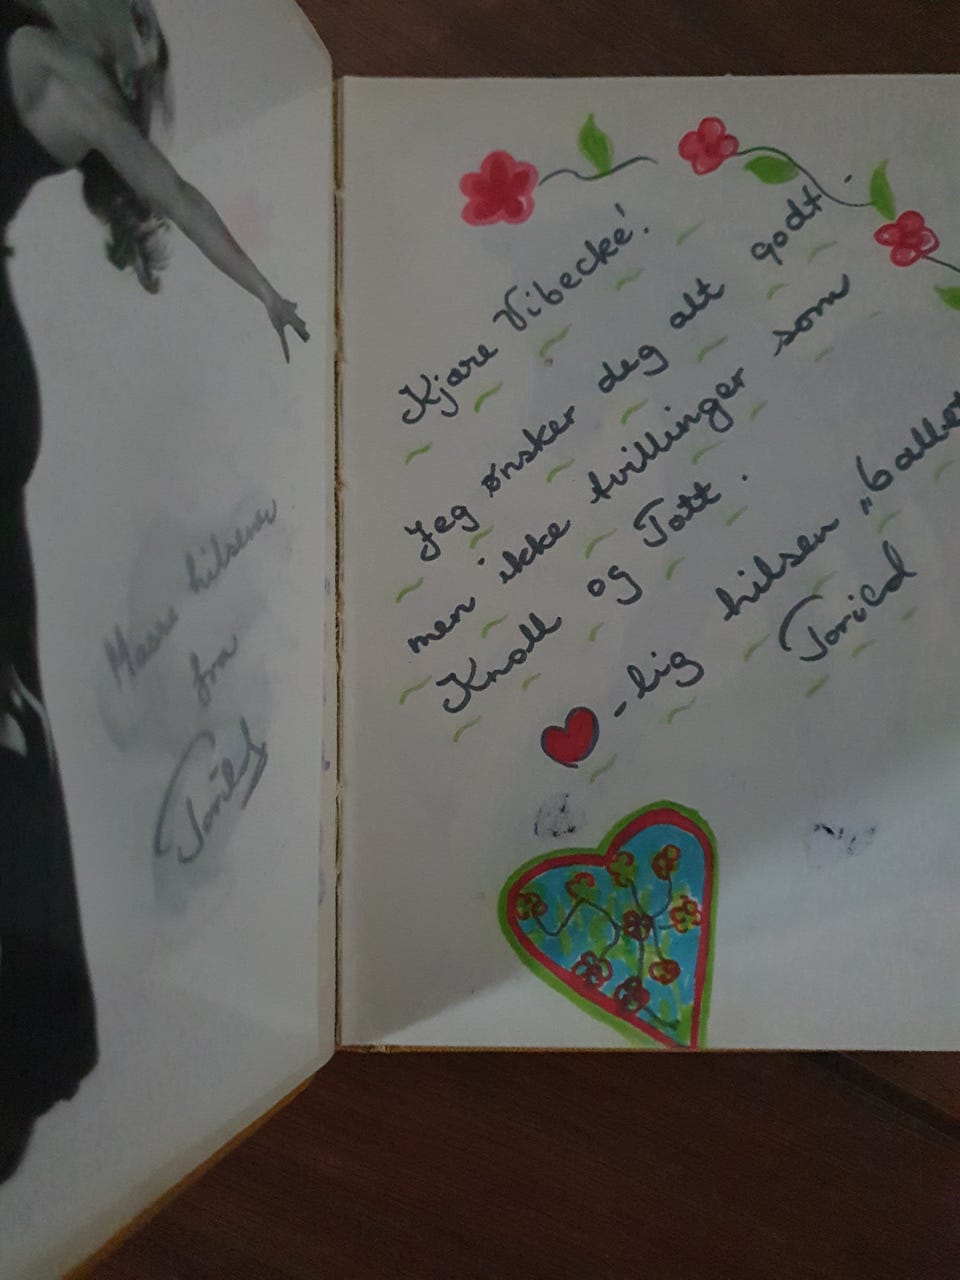 Masse hilsener
fra
Torild
Kjære Vibecke!
Jeg ønsker deg alt godt.
men ikke tvillinger som
Knoll og Tott.
-lig hilsen „balle
Torild